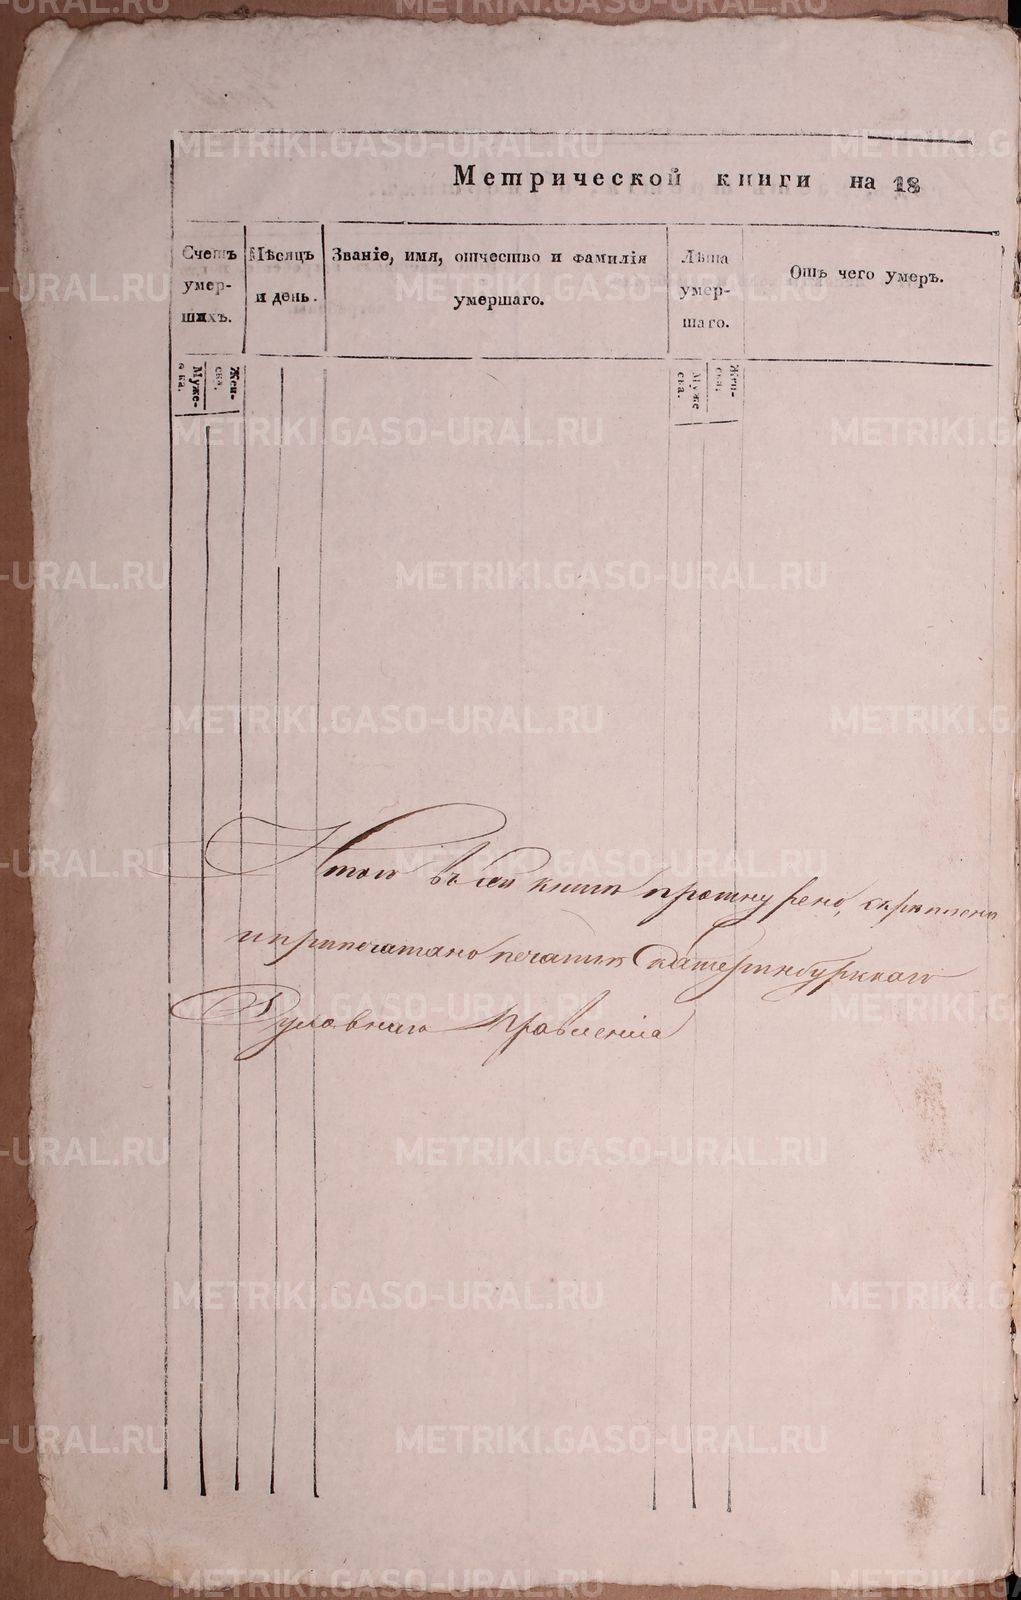 Метрической книги на 18
Счетъ умер- шихъ.
Мѣсяцъ и день.
Званіе, имя, отчество и фамилія умершаго.
Лѣта умер- шаго.
Отъ чего умеръ.
Муже- ска.
Жен- ска.
Муже ска.
Жен- ска.
Итого въ сей книгѣ прошнурено, скрѣплено
и припечатано печатию Екатеринбургскаго
Духовнаго Правления
METRIKI.GASO-URAL.RU